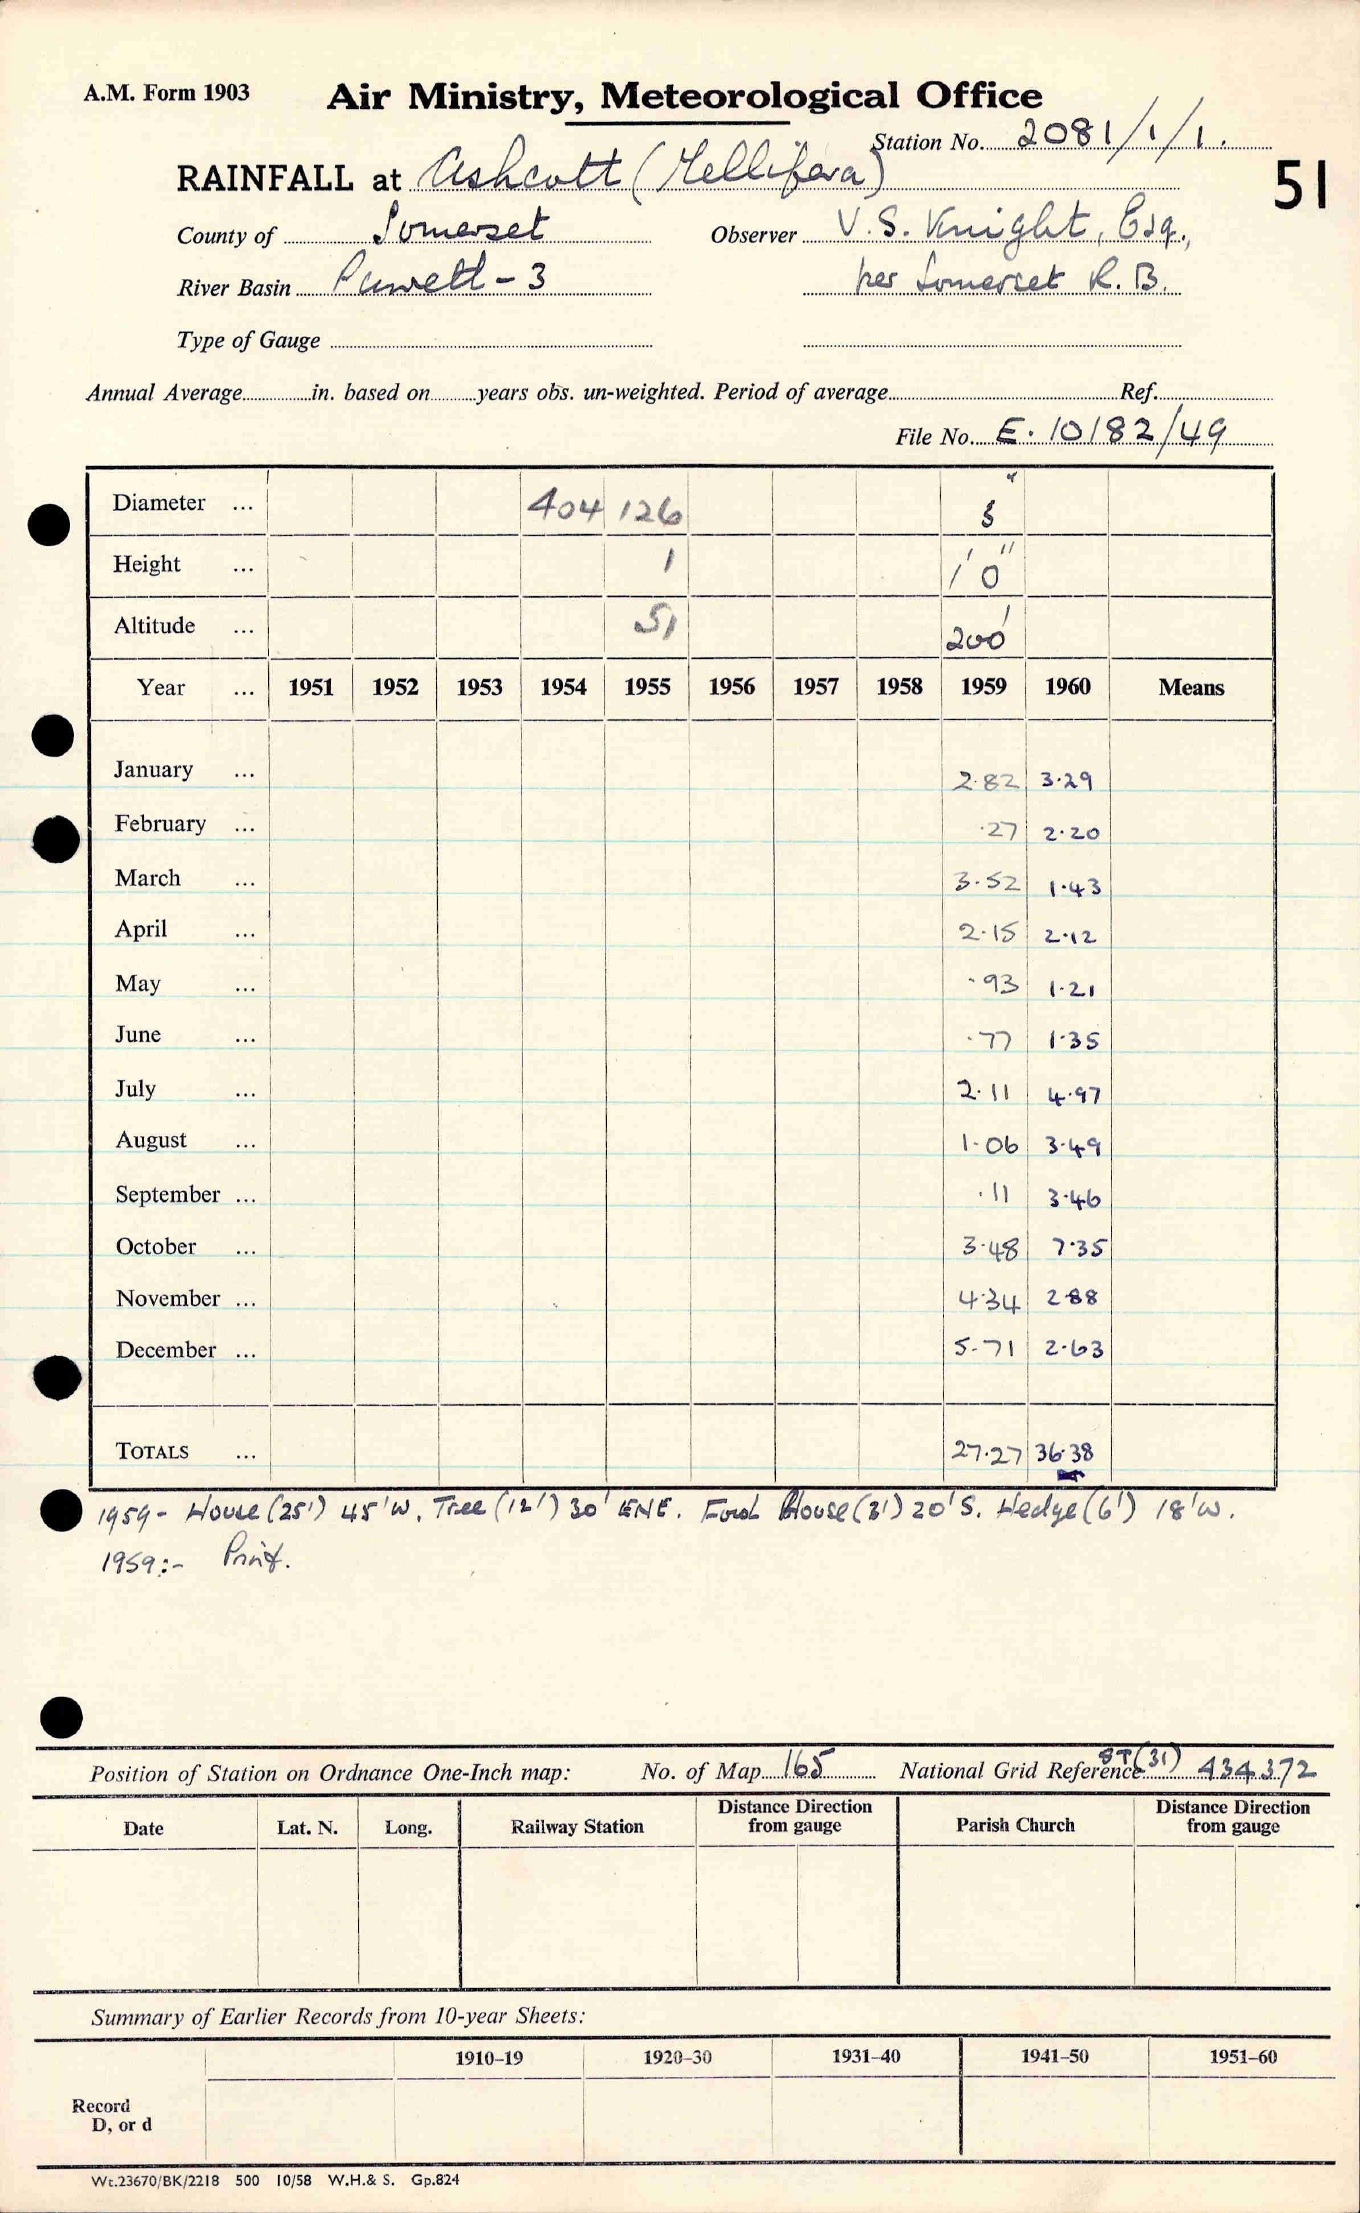 A.M. Form 1903 Air Ministry, Meteorological Office
Station No. 2081/1/1.
RAINFALL at Ashcott (Mellifera) 51
County of Somerset Observer V. S. Knight, Esq.,
River Basin - 3 per Somerset R. B.
Type of Gauge
Annual Average in. based on years obs. un-weighted. Period of average Ref.
File No. E. 10182/49
Diameter ... 404 126 5"
Height ... 1 1' 0"
Altitude ... 51 200'
Year ... 1951 1952 1953 1954 1955 1956 1957 1958 1959 1960 Means
January ... 2.82 3.29
February ... .27 2.20
March ... 3.52 1.43
April ... 2.15 2.12
May ... .93 1.21
June ... .77 1.35
July ... 2.11 4.97
August ... 1.06 3.49
September ... .11 3.46
October ... 3.48 7.35
November ... 4.34 2.88
December ... 5.71 2.63
TOTALS ... 27.27 36.38
1959 - House (25') 45' W. Tree (12') 30' ENE. House (3') 20' S. Hedge (6') 18' W.
1959:- Print.
Position of Station on Ordnance One-Inch map: No. of Map 165 National Grid Reference ST (31) 434372
Date Lat. N. Long. Railway Station Distance Direction from gauge Parish Church Distance Direction from gauge
Summary of Earlier Records from 10-year Sheets:
1910–19 1920–30 1931–40 1941–50 1951–60
Record
D, or d
Wt.23670/BK/2218 500 10/58 W.H.& S. Gp.824